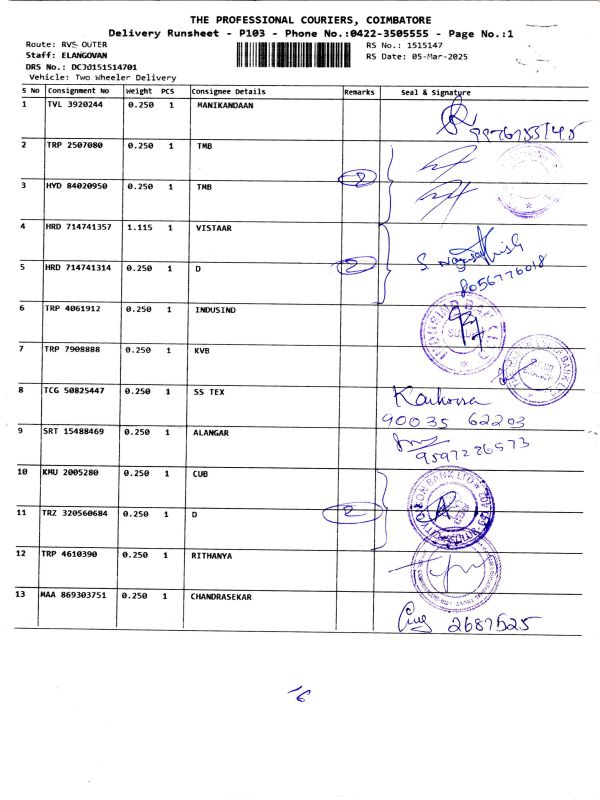 THE PROFESSIONAL COURIERS, COIMBATORE
Delivery Runsheet - P103 - Phone No.:0422-3505555 - Page No.:1
Route: RVS OUTER
RS No.: 1515147
Staff: ELANGOVAN
RS Date: 05-Mar-2025
DRS No.: DCJ0151514701
Vehicle: Two Wheeler Delivery
S No Consignment No Weight PCS Consignee Details Remarks Seal & Signature
1 TVL 3920244 0.250 1 MANIKANDAAN
2 TRP 2507080 0.250 1 TMB
2
3 HYD 84020950 0.250 1 TMB
4 HRD 714741357 1.115 1 VISTAAR
2
5 HRD 714741314 0.250 1 D
8056776018
6 TRP 4061912 0.250 1 INDUSIND
7 TRP 7908888 0.250 1 KVB
8 TCG 50825447 0.250 1 SS TEX
90035 62203
9 SRT 15488469 0.250 1 ALANGAR
9597226573
10 KMU 2005280 0.250 1 CUB
11 TRZ 320560684 0.250 1 D 2
12 TRP 4610390 0.250 1 RITHANYA
13 MAA 869303751 0.250 1 CHANDRASEKAR
2687525